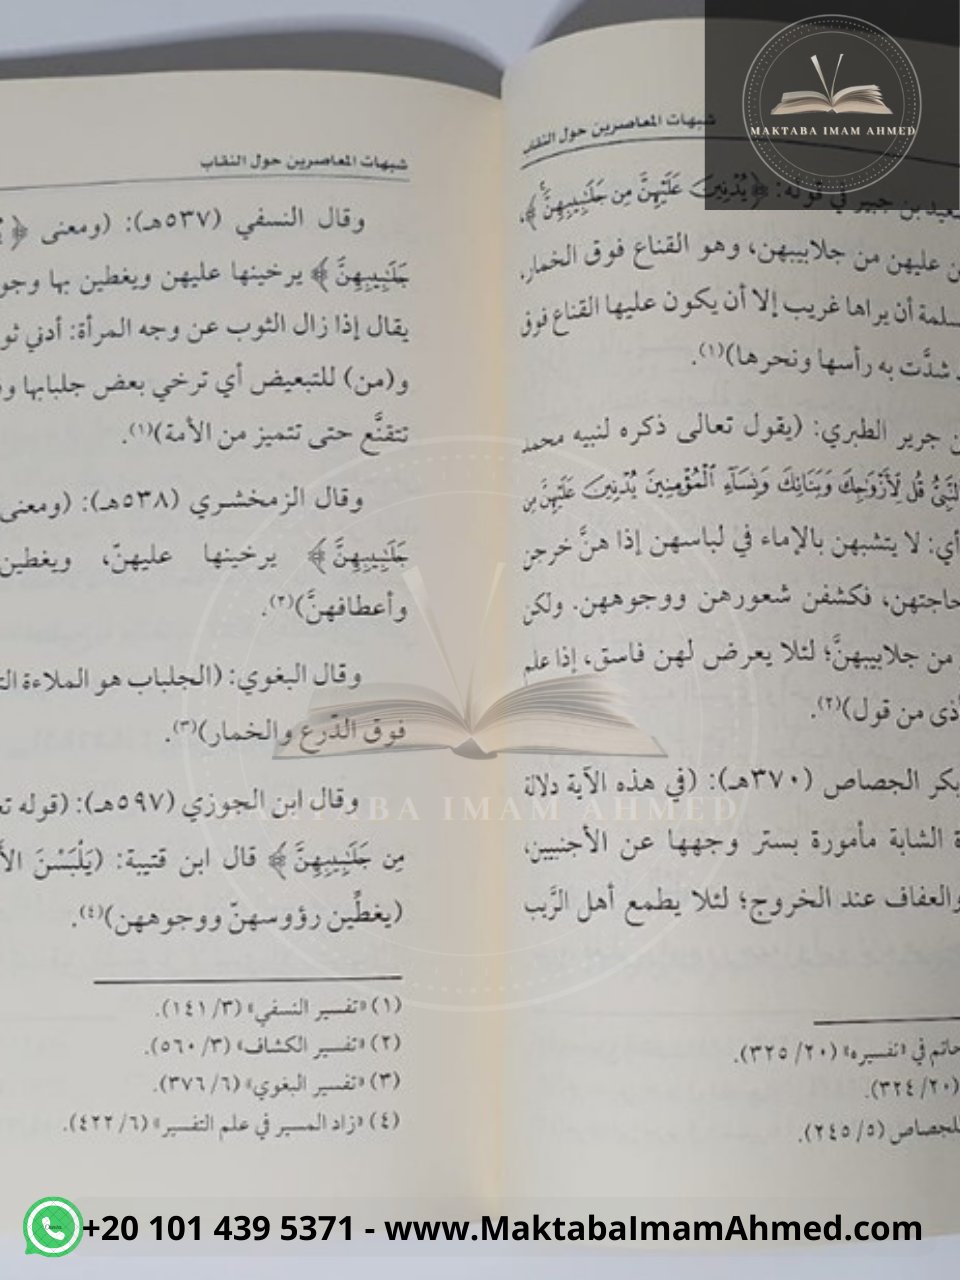 MAKTABA IMAM AHMED
شبهات المعاصرين حول النقاب
سعيد بن جبير في قوله: ﴿يُدْنِينَ عَلَيْهِنَّ مِن جَلَٰبِيبِهِنَّ﴾،
عليهن من جلابيبهن، وهو القناع فوق الخمار،
أن يراها غريب إلا أن يكون عليها القناع فوق
شدَّت به رأسها ونحرها)(١).
جرير الطبري: (يقول تعالى ذكره لنبيه محمد
النَّبِيُّ قُل لِّأَزْوَٰجِكَ وَبَنَاتِكَ وَنِسَآءِ ٱلْمُؤْمِنِينَ يُدْنِينَ عَلَيْهِنَّ مِن
أي: لا يتشبهن بالإماء في لباسهن إذا هنَّ خرجن
فكشفن شعورهن ووجوههن. ولكن
من جلابيبهنَّ؛ لئلا يعرض لهن فاسق، إذا علم
من قول)(٢).
بكر الجصاص (٣٧٠هـ): (في هذه الآية دلالة
الشابة مأمورة بستر وجهها عن الأجنبيين،
والعفاف عند الخروج؛ لئلا يطمع أهل الرَّيب
حاتم في «تفسيره» (٢٠/ ٣٢٥).
(٢٠/ ٣٢٤).
للجصاص (٥/ ٢٤٥).
شبهات المعاصرين حول النقاب
وقال النسفي (٥٣٧هـ): (ومعنى ﴿
جَلَٰبِيبِهِنَّ﴾ يرخينها عليهن ويغطين بها
يقال إذا زال الثوب عن وجه المرأة: أدني
و(من) للتبعيض أي ترخي بعض جلبابها
تتقنَّع حتى تتميز من الأمة)(١).
وقال الزمخشري (٥٣٨هـ): (ومعنى
جَلَٰبِيبِهِنَّ﴾ يرخينها عليهنّ، ويغطين
وأعطافهنَّ)(٢).
وقال البغوي: (الجلباب هو الملاءة
فوق الدّرع والخمار)(٣).
وقال ابن الجوزي (٥٩٧هـ): (قوله
مِن جَلَٰبِيبِهِنَّ﴾ قال ابن قتيبة: (يَلْبَسْنَ
(يغطِّين رؤوسهنّ ووجوههن)(٤).
(١) «تفسير النسفي» (٣/ ١٤١).
(٢) «تفسير الكشاف» (٣/ ٥٦٠).
(٣) «تفسير البغوي» (٦/ ٣٧٦).
(٤) «زاد المسير في علم التفسير» (٦/ ٤٢٢).
MAKTABA IMAM AHMED
+20 101 439 5371 - www.MaktabaImamAhmed.com